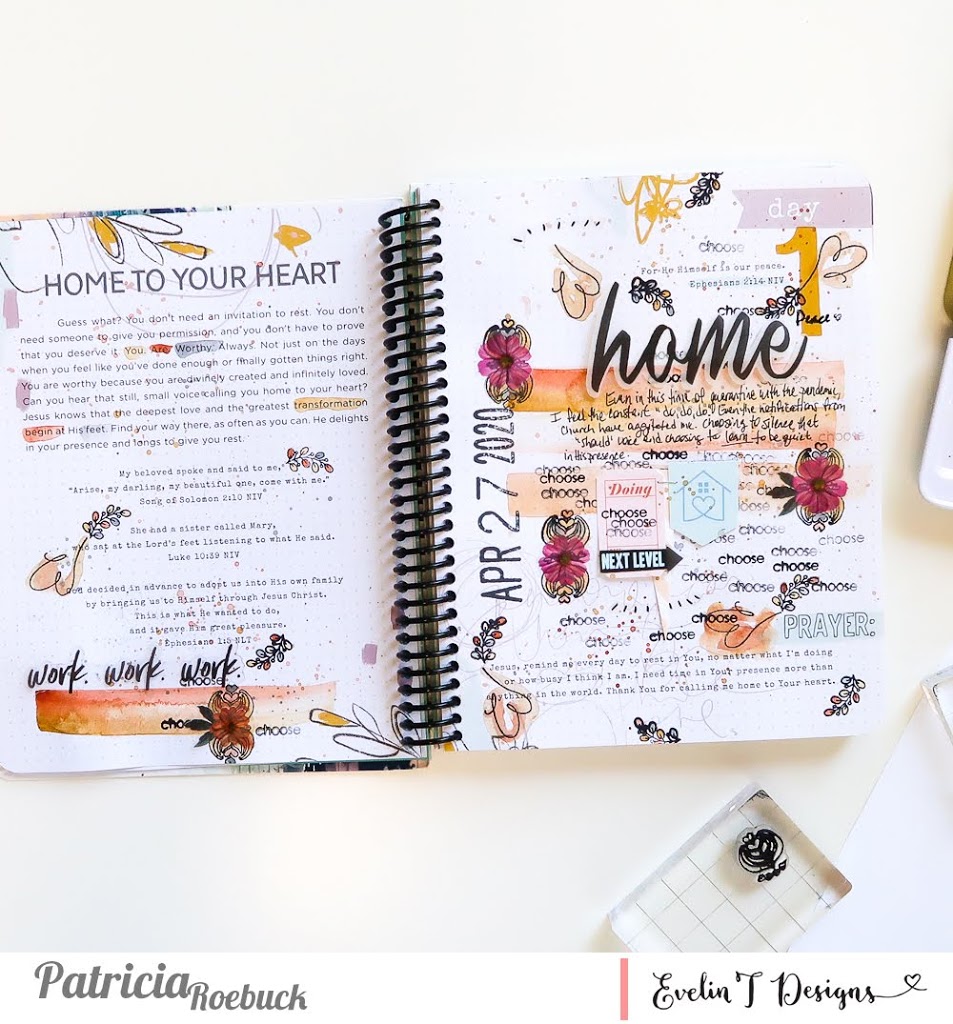 HOME TO YOUR HEART
Guess what? You don't need an invitation to rest. You don't
need someone to give you permission, and you don't have to prove
that you deserve it. You. Are. Worthy. Always. Not just on the days
when you feel like you've done enough or finally gotten things right.
You are worthy because you are divinely created and infinitely loved.
Can you hear that still, small voice calling you home to your heart?
Jesus knows that the deepest love and the greatest transformation
begin at His feet. Find your way there, as often as you can. He delights
in your presence and longs to give you rest.
My beloved spoke and said to me,
"Arise, my darling, my beautiful one, come with me."
Song of Solomon 2:10 NIV
She had a sister called Mary,
who sat at the Lord's feet listening to what He said.
Luke 10:39 NIV
God decided in advance to adopt us into His own family
by bringing us to Himself through Jesus Christ.
This is what He wanted to do,
and it gave Him great pleasure.
Ephesians 1:5 NLT
work. work. work.
choose
choose choose
day
1
choose
For He Himself is our peace.
Ephesians 2:14 NIV
choose
Peace
home
Even in this time of quarantine with the pandemic,
I feel the constant "do, do, do." Even the notifications from
church have aggitated me. choosing to silence that
"should" voice and choosing to learn to be quiet
in His presence.
choose
APR 27 2020
choose choose
choose
choose
Doing
choose
choose
choose
NEXT LEVEL
choose choose
choose
choose choose
choose choose
choose choose
choose
choose choose
choose
PRAYER:
Jesus, remind me every day to rest in You, no matter what I'm doing
or how busy I think I am. I need time in Your presence more than
anything in the world. Thank You for calling me home to Your heart.
Patricia Roebuck
Evelin T Designs